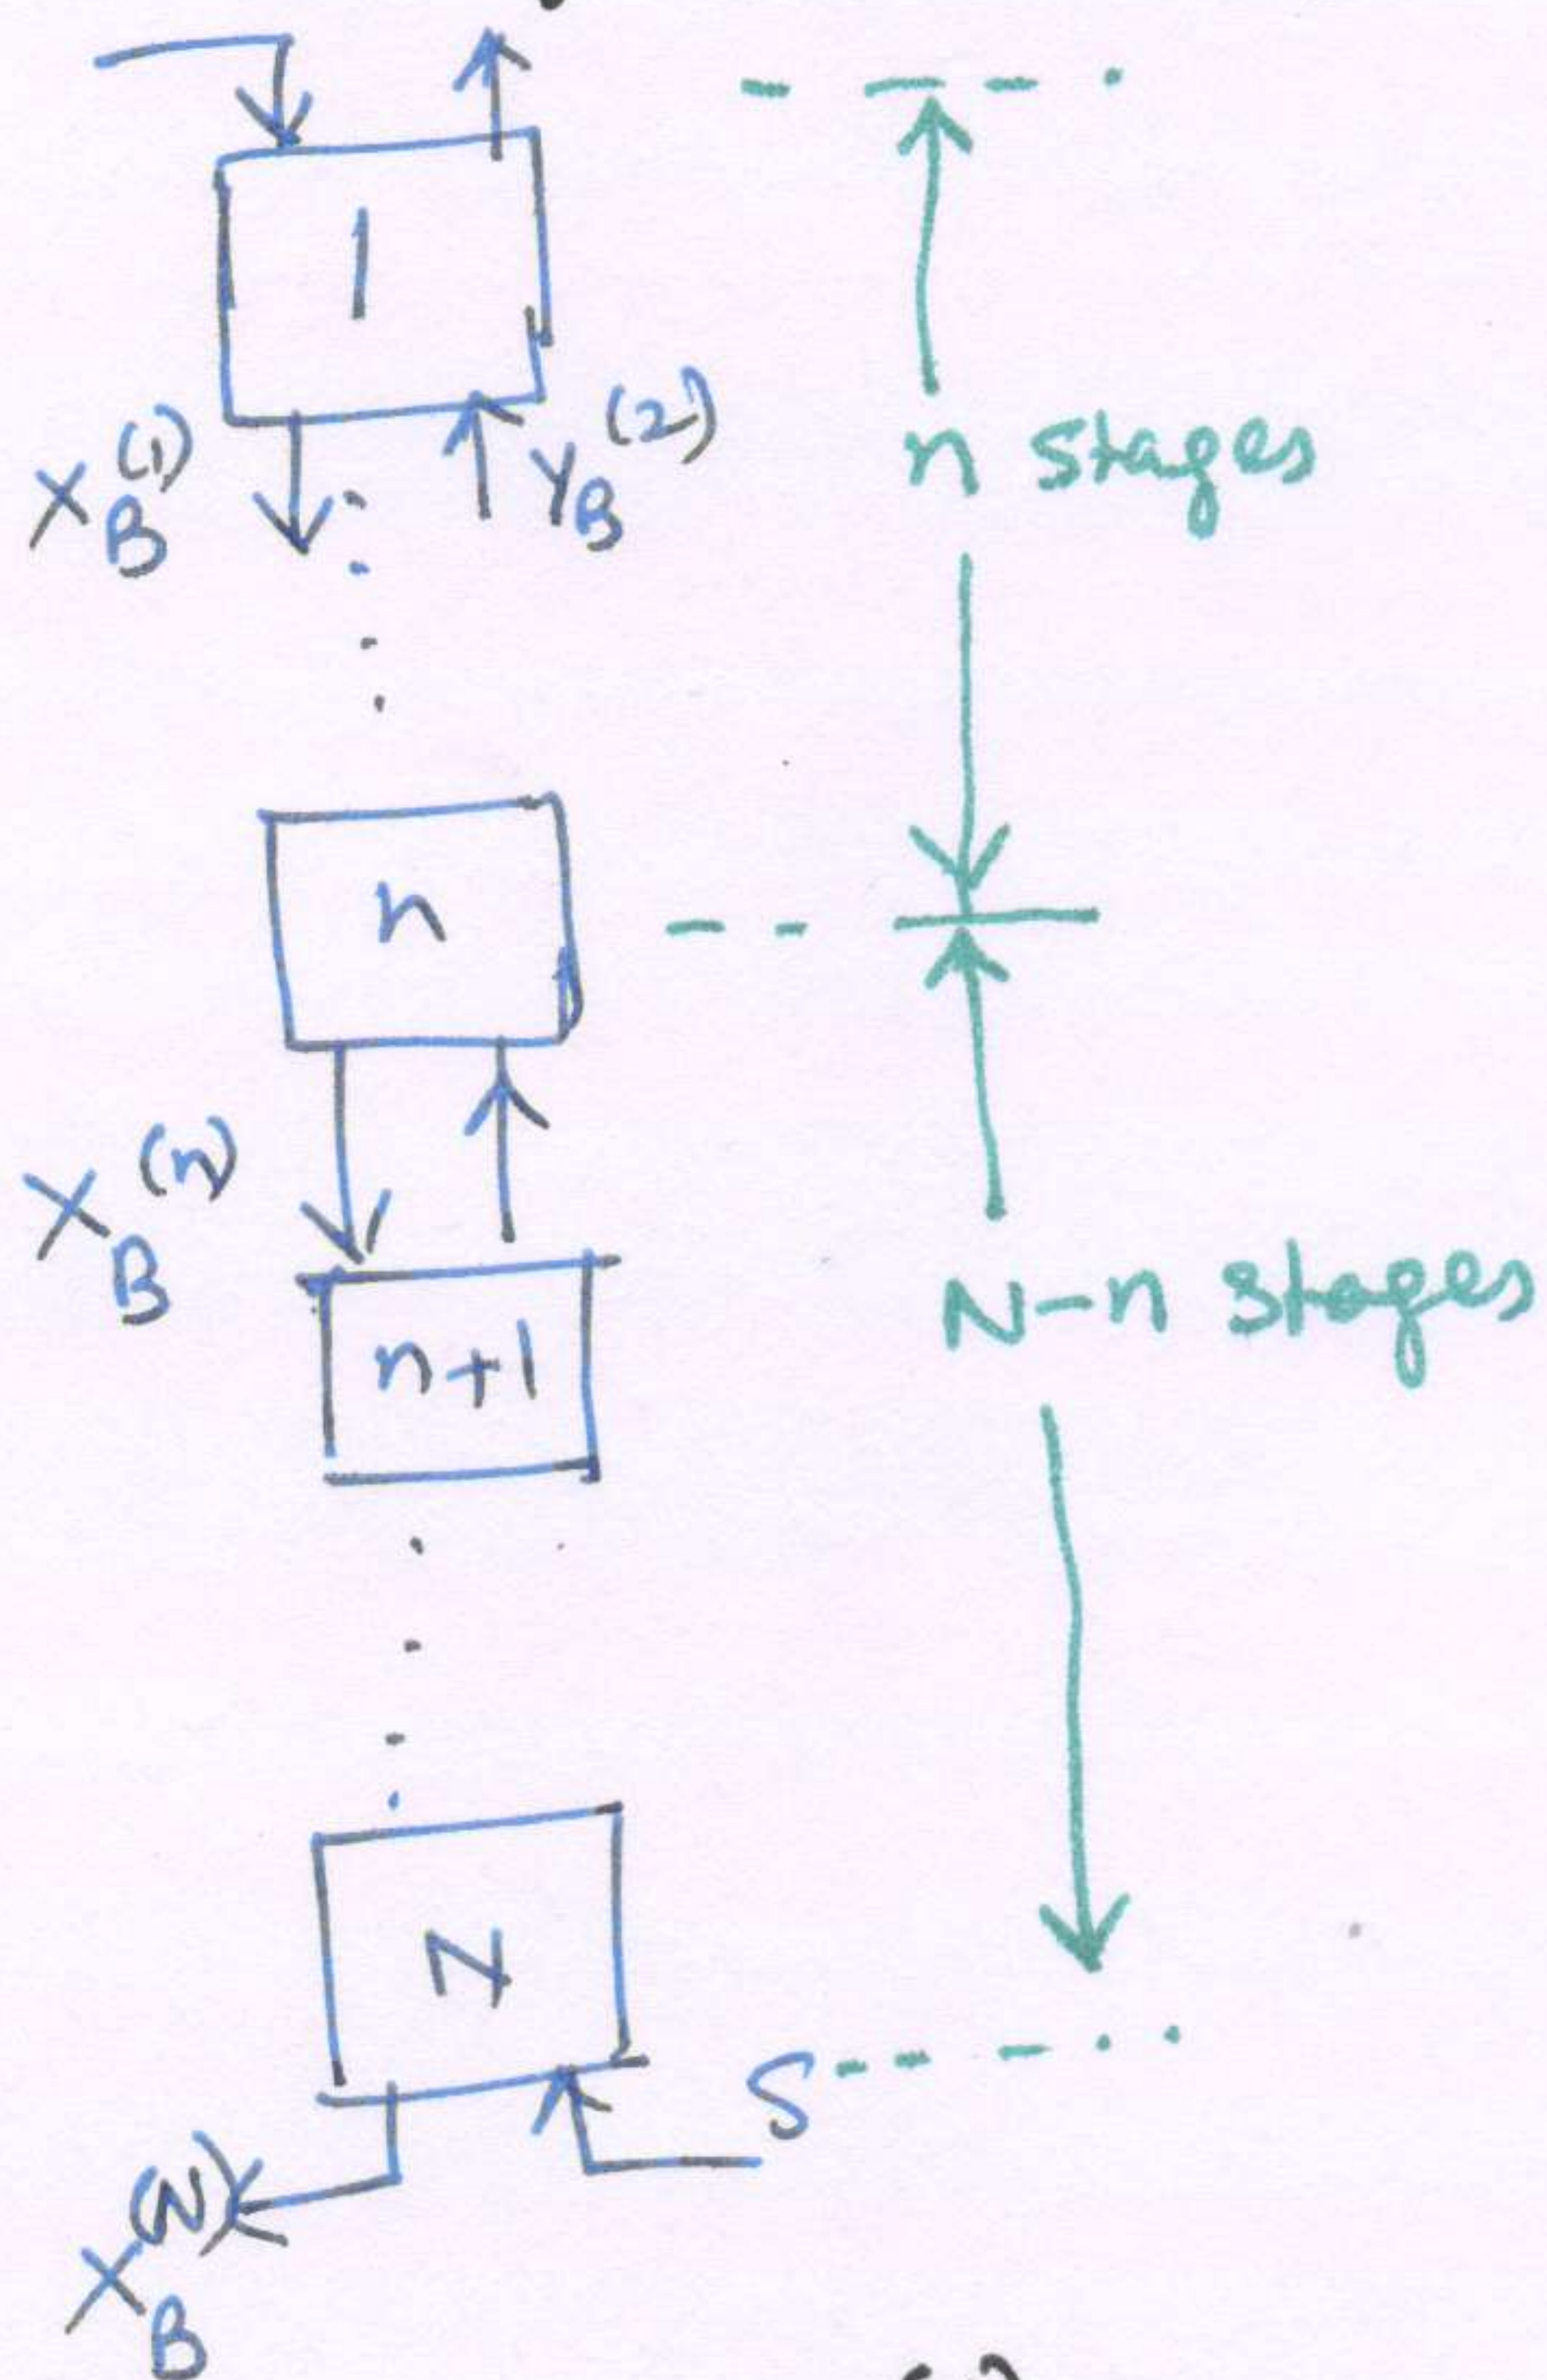 1
X_B^(1)
Y_B^(2)
n stages
n
X_B^(n)
n+1
N-n stages
N
S
X_B^(N)